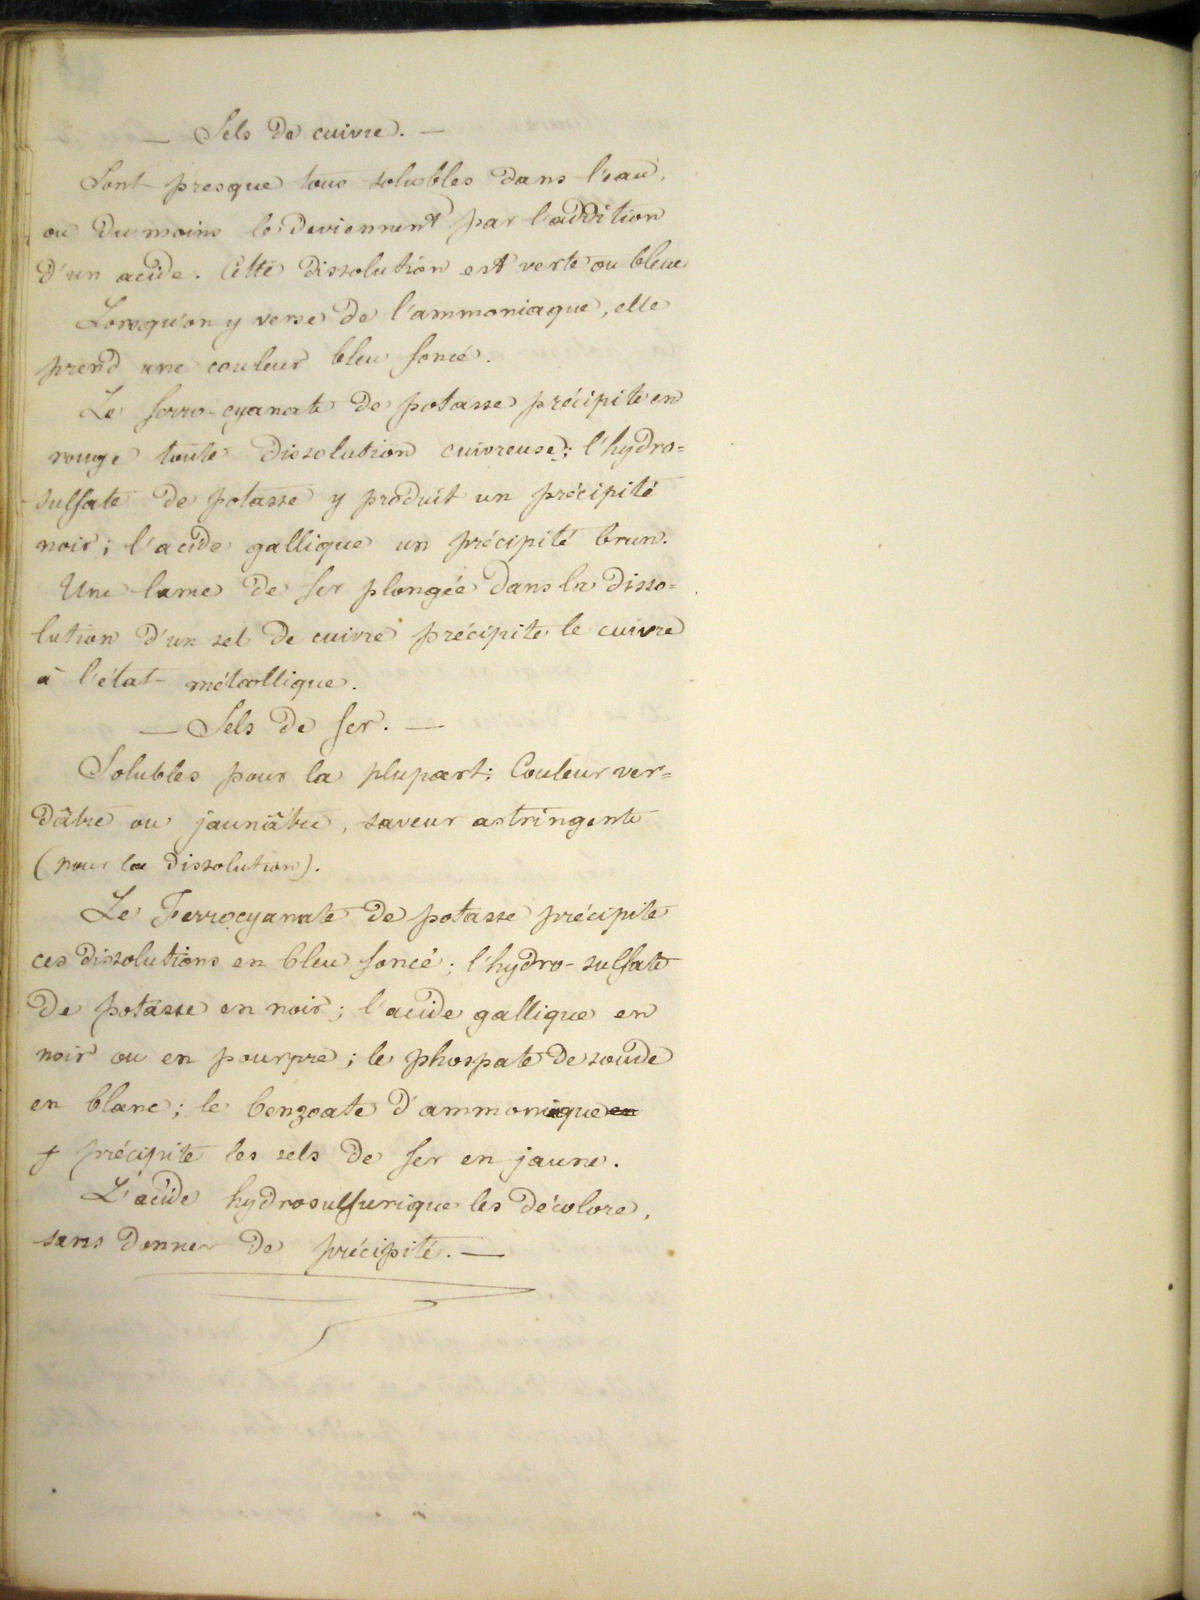 — Sels de cuivre. —
Sont presque tous solubles dans l'eau,
ou du moins le deviennent par l'addition
d'un acide. Cette dissolution est verte ou bleue
Lorsqu'on y verse de l'ammoniaque, elle
prend une couleur bleu foncé.
Le ferro-cyanate de potasse précipite en
rouge toute dissolution cuivreuse; l'hydro=
sulfate de potasse y produit un précipité
noir; l'acide gallique un précipité brun.
Une lame de fer plongée dans la disso=
lution d'un sel de cuivre précipite le cuivre
à l'état métallique.
— Sels de fer. —
Solubles pour la plupart; Couleur ver=
dâtre ou jaunâtre, saveur astringente
(pour la dissolution).
Le Ferrocyanate de potasse précipite
ces dissolutions en bleu foncé; l'hydro-sulfate
de potasse en noir; l'acide gallique en
noir ou en pourpre; le phospate de soude
en blanc; le benzoate d'ammoniaque en
précipite les sels de fer en jaune.
L'acide hydrosulfurique les décolore,
sans donner de précipité. —